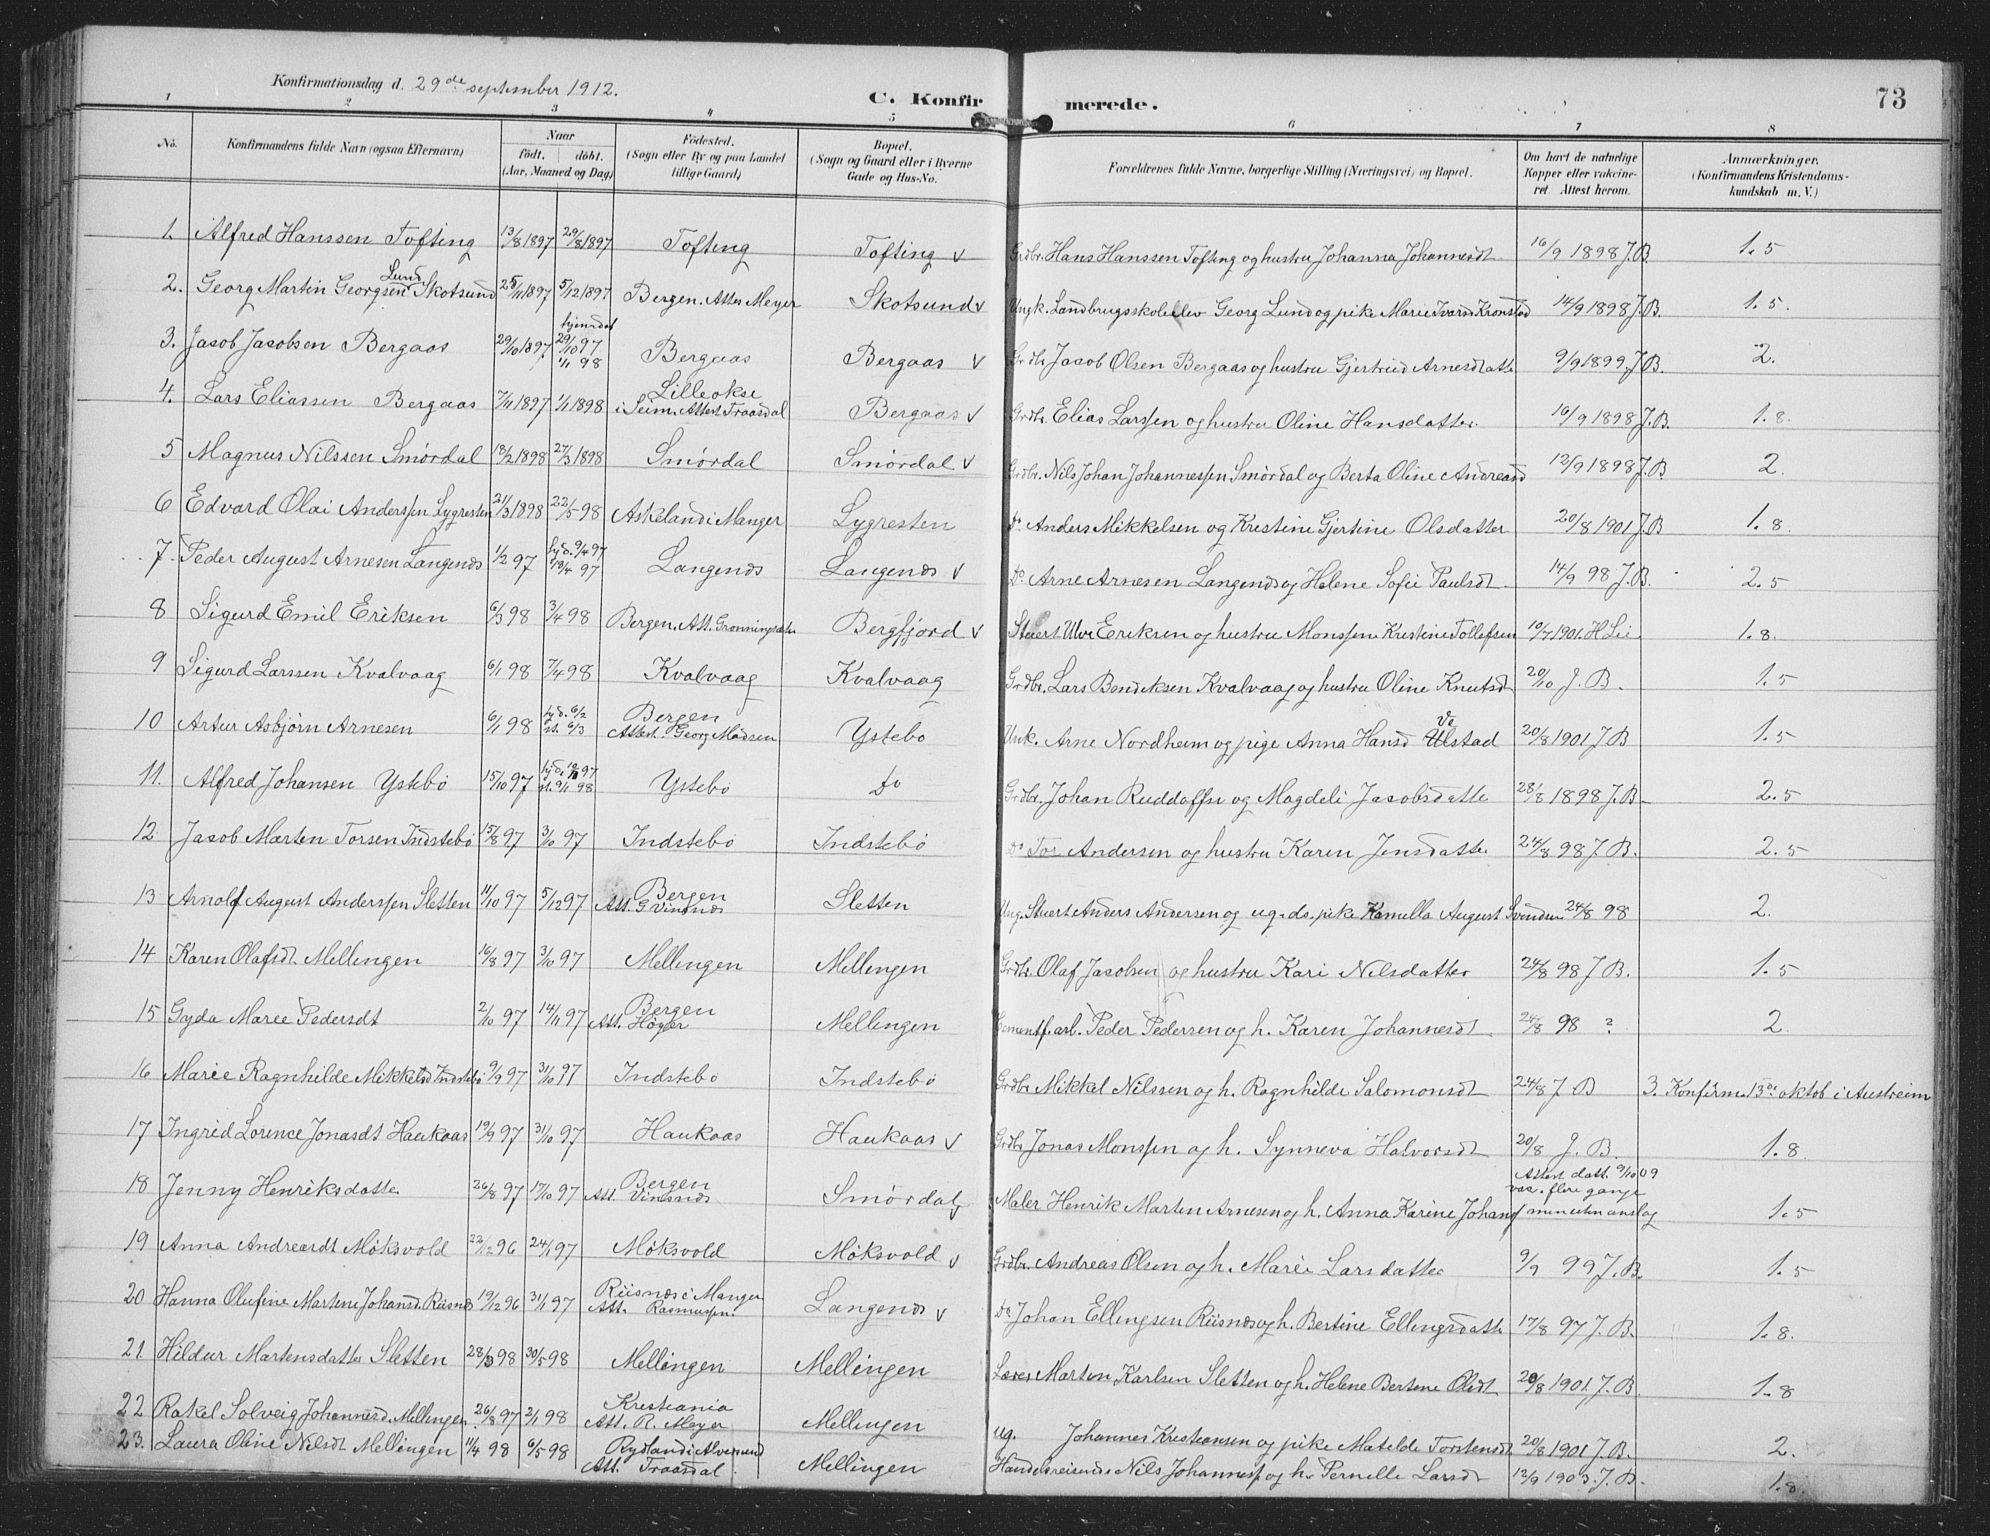 Konfirmationsdag d. 29de september 1912.
C. Konfirmerede.
73
1 2 3 4 5 6 7 8
No. Konfirmandens fulde Navn (ogsaa Efternavn) Naar født. døbt. (Aar, Maaned og Dag) Fødested. (Sogn eller By og paa Landet tillige Gaard) Bopæl. (Sogn og Gaard eller i Byerne Gade og Hus-No. Forældrenes fulde Navne, borgerlige Stilling (Næringsvei) og Bopæl. Om havt de naturlige Kopper eller vakcineret. Attest herom. Anmærkninger. (Konfirmandens Kristendomskundskab m. V.)
1. Alfred Hanssen Tofting 13/8 1897 29/8 1897 Tofting Tofting v Grdbr. Hans Hanssen Tofting og hustru Johanna Johannesdt 16/9 1898 J.B. 1.5
2. Georg Martin Georgsen Lund Skotsund 25/11 1897 5/12 1897 Bergen. Attes Meyer Skotsund v Ungk. Landbrugsskoleelev Georg Lund og pike Marie Ivarsd Kronstad 14/9 1898 J.B. 1.5.
3. Jacob Jacobsen Bergaas 29/10 1897 hjemdøt 29/10 97 1/1 98 Bergaas Bergaas v Grdbr Jacob Olsen Bergaas og hustru Gjertrud Arnesdatte 9/9 1899 J.B. 2.
4. Lars Eliassen Bergaas 7/11 1897 1/1 1898 Lilleokse i Seim. Attest Traasdal Bergaas v Grdbr. Elias Larssen og hustru Oline Hansdatter. 16/9 1898 J.B. 1.8.
5 Magnus Nilssen Smørdal 18/2 1898 27/3 1898 Smørdal Smørdal v Grdbr. Nils Johan Johannessen Smørdal og Berta Oline Andreasd 12/9 1898 J.B. 2
6 Edvard Olai Anderssen Lygresten 21/3 1898 22/5 98 Askeland i Manger Lygresten Do Anders Mikkelsen og Kristine Gjertine Olsdatter 20/8 1901 J.B 1.8.
7. Peder August Arnesen Langenæs 1/2 97 hjd. 9/4 97 18/4 97 Langenæs Langenæs v Do Arne Arnesen Langenæs og Helene Sofie Paulsdt. 14/9 98 J.B. 2.5
8 Sigurd Emil Eriksen 6/3 98 3/4 98 Bergen. Att. Grønningsæter Bergfjord v Stuert Ulve Eriksen og hustru Monssen Kristine Tollefsen 10/7 1901. H Lie 1.8.
9 Sigurd Larssen Kvalvaag 6/1 98 7/4 98 Kvalvaag Kvalvaag Grdbr. Lars Bendiksen Kvalvaag og hustru Oline Knutsdt 20/10 J.B. 1.5
10 Artur Asbjørn Arnesen 6/1 98 hjd. 6/2 st. 6/3 Bergen Attest. Georg Madsen Ystebø Unk. Arne Nordheim og pige Anna Hansd Ulstad 20/8 1901 J.B 1.5
11. Alfred Johansen Ystebø 15/10 97 Ystebø Do Grdbr. Johan Ruddolfsn og Magdeli Jacobsdatte 28/8 1898 J.B. 2.5
12 Jacob Marten Torsen Indstebø 15/8 97 3/10 97 Indstebø Indstebø Do Tor Andersen og hustru Karen Jensdatte 24/8 98 J.B. 2.5
13 Arnolf August Anderssen Sletten 11/10 97 5/12 97 Bergen Att. G Vinsnæs Sletten Ung. Stuert Anders Andersen og ug. ds. pike Kamilla August Svendsen 24/8 98 2.
14 Karen Olafsdt. Mellingen 16/8 97 3/10 97 Mellingen Mellingen Grdbr. Olaf Jacobsen og hustru Kari Nilsdatter 24/8 98 J B. 1.5
15 Gyda Marie Pedersdt 2/10 97 14/11 97 Bergen Att. Höyer Mellingen Cementf. arb. Peder Pedersen og h. Karen Johannesdt 24/8 98 ? 2
16 Marie Ragnhilde Mikkelsd Indstebø 9/9 97 31/10 97 Indstebø Indstebø Grdbr. Mikkel Nilssen og h. Ragnhilde Salomonsdt 24/8 J B 3. Konfirm. 13de oktob i Austreim
17 Ingrid Lorence Jonasdt Haukaas 19/9 97 31/10 97 Haukaas Haukaas v Grdbr Jonas Monssen og h. Synneva Halvorsdt 20/8 J. B. 1.8.
18 Jenny Henriksdatte 26/8 97 17/10 97 Bergen Att. Vinsnæs Smørdal v Maler Henrik Marten Arnesen og h. Anna Karine Johansd Attest datt. 9/10 09 vac. flere gange men uten anslag 1.5
19 Anna Andreasdt Møksvold 22/12 96 24/1 97 Møksvold Møksvold v Grdbr. Andreas Olsen og h. Marie Larsdatte 9/9 99 J.B. 1.5
20 Hanna Olufine Martene Johansd. Riisnæs 19/12 96 31/1 97 Riisnæs i Manger Att. Rasmussen. Langenæs v Do Johan Ellingsen Riisnæs og h. Bertine Ellingsdatte 17/8 97 J.B. 1.8.
21. Hildur Martensdatte Sletten 28/3 98 30/5 98 Mellingen Mellingen Lærer Marten Karlsen Sletten og h. Helene Bertine Olsdt 20/8 1901 J.B. 1.8
22 Rakel Solveig Johannesd. Mellingen 26/8 97 2/1 98 Kristiania Att. R. Meyer Mellingen ug. Johannes Kristiansen og pike Matelde Torstensdt 20/8 1901 J.B. 2.
23. Laura Oline Nilsdt Mellingen 11/4 98 6/5 98 Rydland i Alversund Att. Traasdal. Mellingen Handelsreisende Nils Johannessen og h. Pernelle Larsdt 12/9 1903. J.B. 1.8.